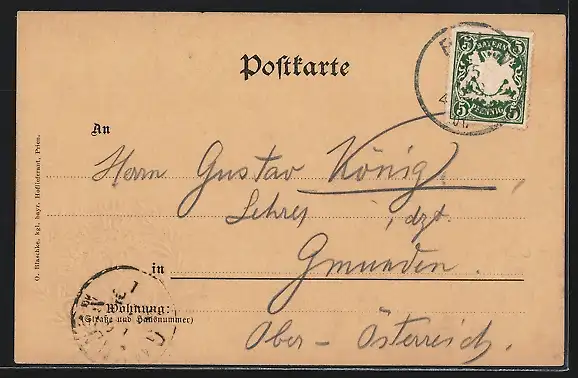 Postkarte
BAYERN
5 5
5 5
PFENNIG
An
Herrn Gustav König
Lehrer, dzt.
in Gmunden.
Wohnung:
(Straße und Hausnummer)
Ober-Österreich.
O. Blaschke, kgl. bayr. Hoflieferant, Prien.